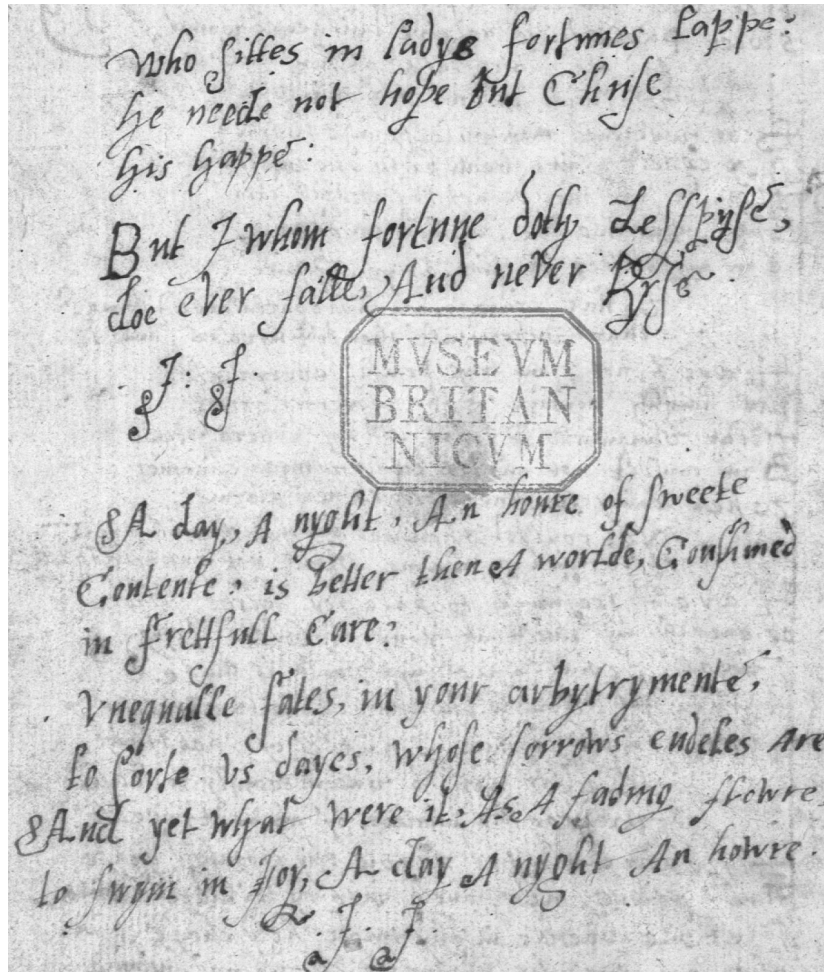 Who sittes in ladye fortunes Lappe:
he neede not hope But Chuse
his happe:
But I whom fortune doth desspyse,
doe ever falle, And never Ryse
I: I
MVSEVM
BRITAN
NICVM
A day, A nyght, An houre of sweete
Contente, is better then A worlde, Consumed
in frettfull Care:
Vnequalle fates, in your arbytrymente,
to sorte vs dayes, whose sorrows endeles are
And yet what were it, As A fading flowre,
to swym in Joy, A day A nyght An howre.
I: I